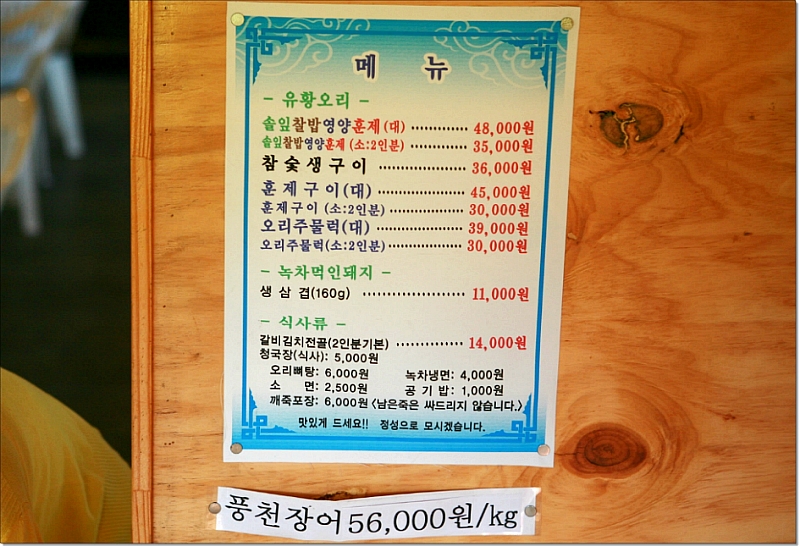 메 뉴
- 유황오리 -
솔잎찰밥영양훈제(대) ··············· 48,000원
솔잎찰밥영양훈제(소:2인분) ··············· 35,000원
참숯생구이 ······················· 36,000원
훈제구이(대) ······················· 45,000원
훈제구이 (소:2인분) ··················· 30,000원
오리주물럭(대) ······················ 39,000원
오리주물럭(소:2인분) ··················· 30,000원
- 녹차먹인돼지 -
생 삼 겹(160g) ························ 11,000원
- 식사류 -
갈비김치전골(2인분기본) ················ 14,000원
청국장(식사): 5,000원
오리뼈탕: 6,000원 녹차냉면: 4,000원
소 면: 2,500원 공 기 밥: 1,000원
깨죽포장: 6,000원 <남은죽은 싸드리지 않습니다.>
맛있게 드세요!! 정성으로 모시겠습니다.
풍천장어56,000원/kg